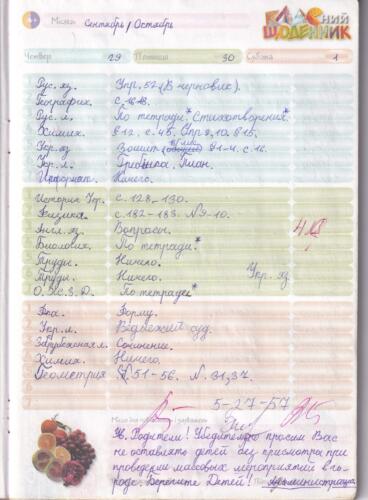 Месяц Сентябрь/Октябрь
КЛАСНИЙ
ЩОДЕННИК
Четвер 29 Пʼятниця 30 Субота 1
Рус. яз. Упр. 52 (в черновик).
Географич.
Рус. л. По тетради.* Стихотворения.*
Химия.
Укр. яз. Зошит
Укр. л. План.
Информат. Ничего.
История Укр. с. 128-130.
Физика. с. 182-183. №9-10.
Англ. яз. Вопросы.
Биология. По тетради*
Труды. Ничего.
Труды. Ничего. Укр. яз.
По тетради*
Физ. Форму.
Укр. л. Ведмежий суд.
Зарубежная л. Сочинение.
Химия. Ничего.
Геометрия §. 51-56. №. 31,37.
5-27-57
Ув. Родители! Убедительно просим Вас
не оставлять детей без присмотра при
проведении массовых мероприятий в го-
роде. Берегите Детей! Администрация